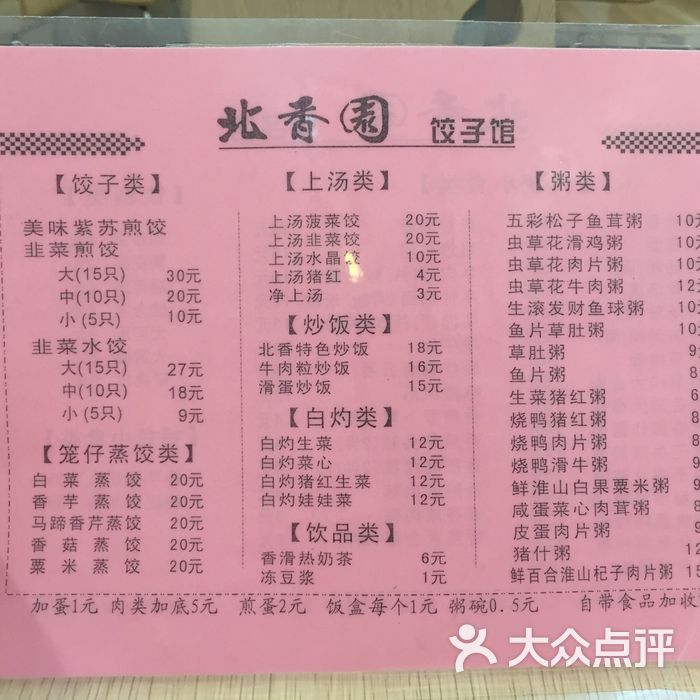 北香园 饺子馆
【饺子类】
美味紫苏煎饺
韭菜煎饺
大(15只) 30元
中(10只) 20元
小(5只) 10元
韭菜水饺
大(15只) 27元
中(10只) 18元
小(5只) 9元
【笼仔蒸饺类】
白菜蒸饺 20元
香芋蒸饺 20元
马蹄香芹蒸饺 20元
香菇蒸饺 20元
粟米蒸饺 20元
【上汤类】
上汤菠菜饺 20元
上汤韭菜饺 20元
上汤水晶饺 10元
上汤猪红 4元
净上汤 3元
【炒饭类】
北香特色炒饭 18元
牛肉粒炒饭 16元
滑蛋炒饭 15元
【白灼类】
白灼生菜 12元
白灼菜心 12元
白灼猪红生菜 12元
白灼娃娃菜 12元
【饮品类】
香滑热奶茶 6元
冻豆浆 1元
【粥类】
五彩松子鱼茸粥 10元
虫草花滑鸡粥 10元
虫草花肉片粥 10元
虫草花牛肉粥 12元
生滚发财鱼球粥 10元
鱼片草肚粥 10元
草肚粥 9
鱼片粥 8
生菜猪红粥 6
烧鸭猪红粥 8
烧鸭肉片粥
烧鸭滑牛粥 9
鲜淮山白果粟米粥 9
咸蛋菜心肉茸粥 8
皮蛋肉片粥 9
猪什粥 12
鲜百合淮山杞子肉片粥 15
加蛋1元 肉类加底5元 煎蛋2元 饭盒每个1元 粥碗0.5元 自带食品加收
大众点评